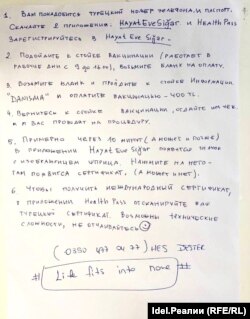 1. Вам понадобится турецкий номер телефона и паспорт.
Скачайте 2 приложения: Hayat Eve Sığar и Health Pass
Зарегистрируйтесь в Hayat Eve Sığar.
2. Подойдите к стойке вакцинации (работает в
рабочие дни с 9 до
возьмите бланк на оплату.
3. Возьмите бланк и пройдите к стойке Информации
"Danışma" и оплатите вакцинацию - 400 TL.
4. Вернитесь к стойке вакцинации, отдайте им чек
и вас проводят на процедуру.
5. Примерно через 10 минут (а может и позже)
в приложении Hayat Eve Sığar появится значок
с изображением шприца. Нажмите на него -
там появится сертификат. (а может и нет).
6. Чтобы получить международный сертификат,
в приложении Health Pass отсканируйте код
турецкий сертификат. Возможны технические
сложности, не отчаивайтесь
HES DESTEK
# Life fits into
#
Idel.Реалии (RFE/RL)